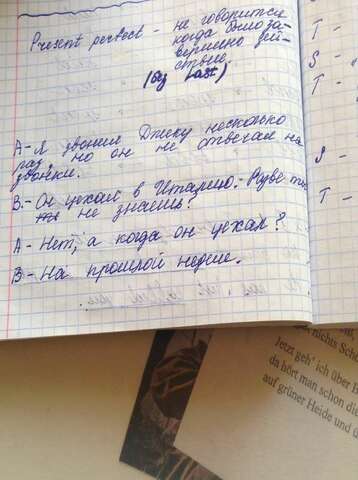 Present perfect - не говорится
когда было за-
вершено дей-
ствие.
(без Last)
A - Я звонил Джеку несколько
раз, но он не отвечал на
звонки.
B. - Он уехал в Италию. - Разве ты
не знаешь?
A - Нет, а когда он уехал?
B - На прошлой неделе.
T -
S -
T -
S -
T -
nichts Schö
Jetzt geh' ich über
da hört man schon die
auf grüner Heide und